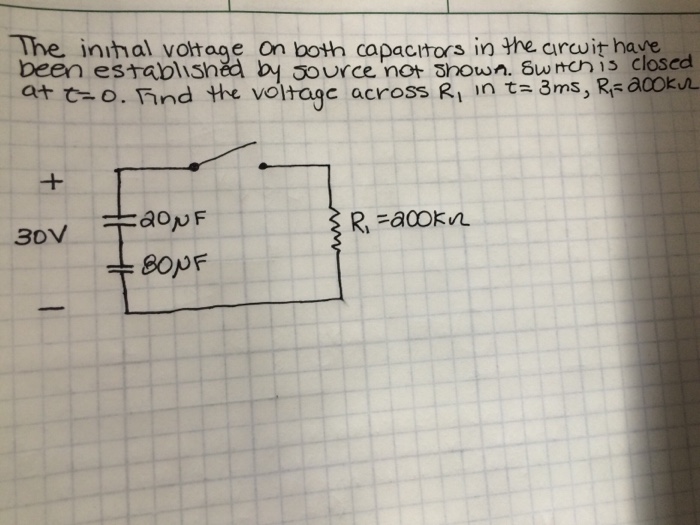 The initial voltage on both capacitors in the circuit have
been established by source not shown. Switch is closed
at t=0. Find the voltage across R₁ in t= 3ms, R₁=200kΩ
+
20μF
R₁ =200kΩ
30V
80μF
—